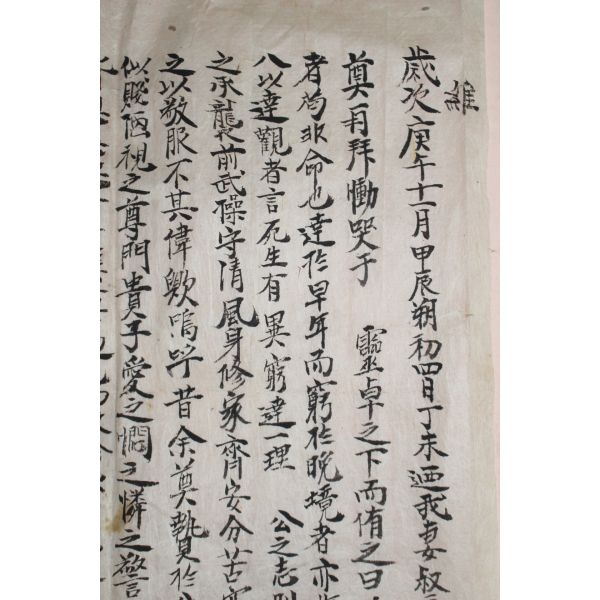 維
歲次庚午十一月甲辰朔初四日丁未迺我妻叔
奠一酌拜慟哭于 靈卓之下而侑之曰
者均非命也達於早年而窮於晚境者亦
人以達觀者言死生有異窮達一理 公之志則
之承襲前武操守清風身修家齊安分苦
之以敬服不其偉歟嗚呼昔余奠贄於
似賤陋視之尊門貴子愛之憫之憐之警